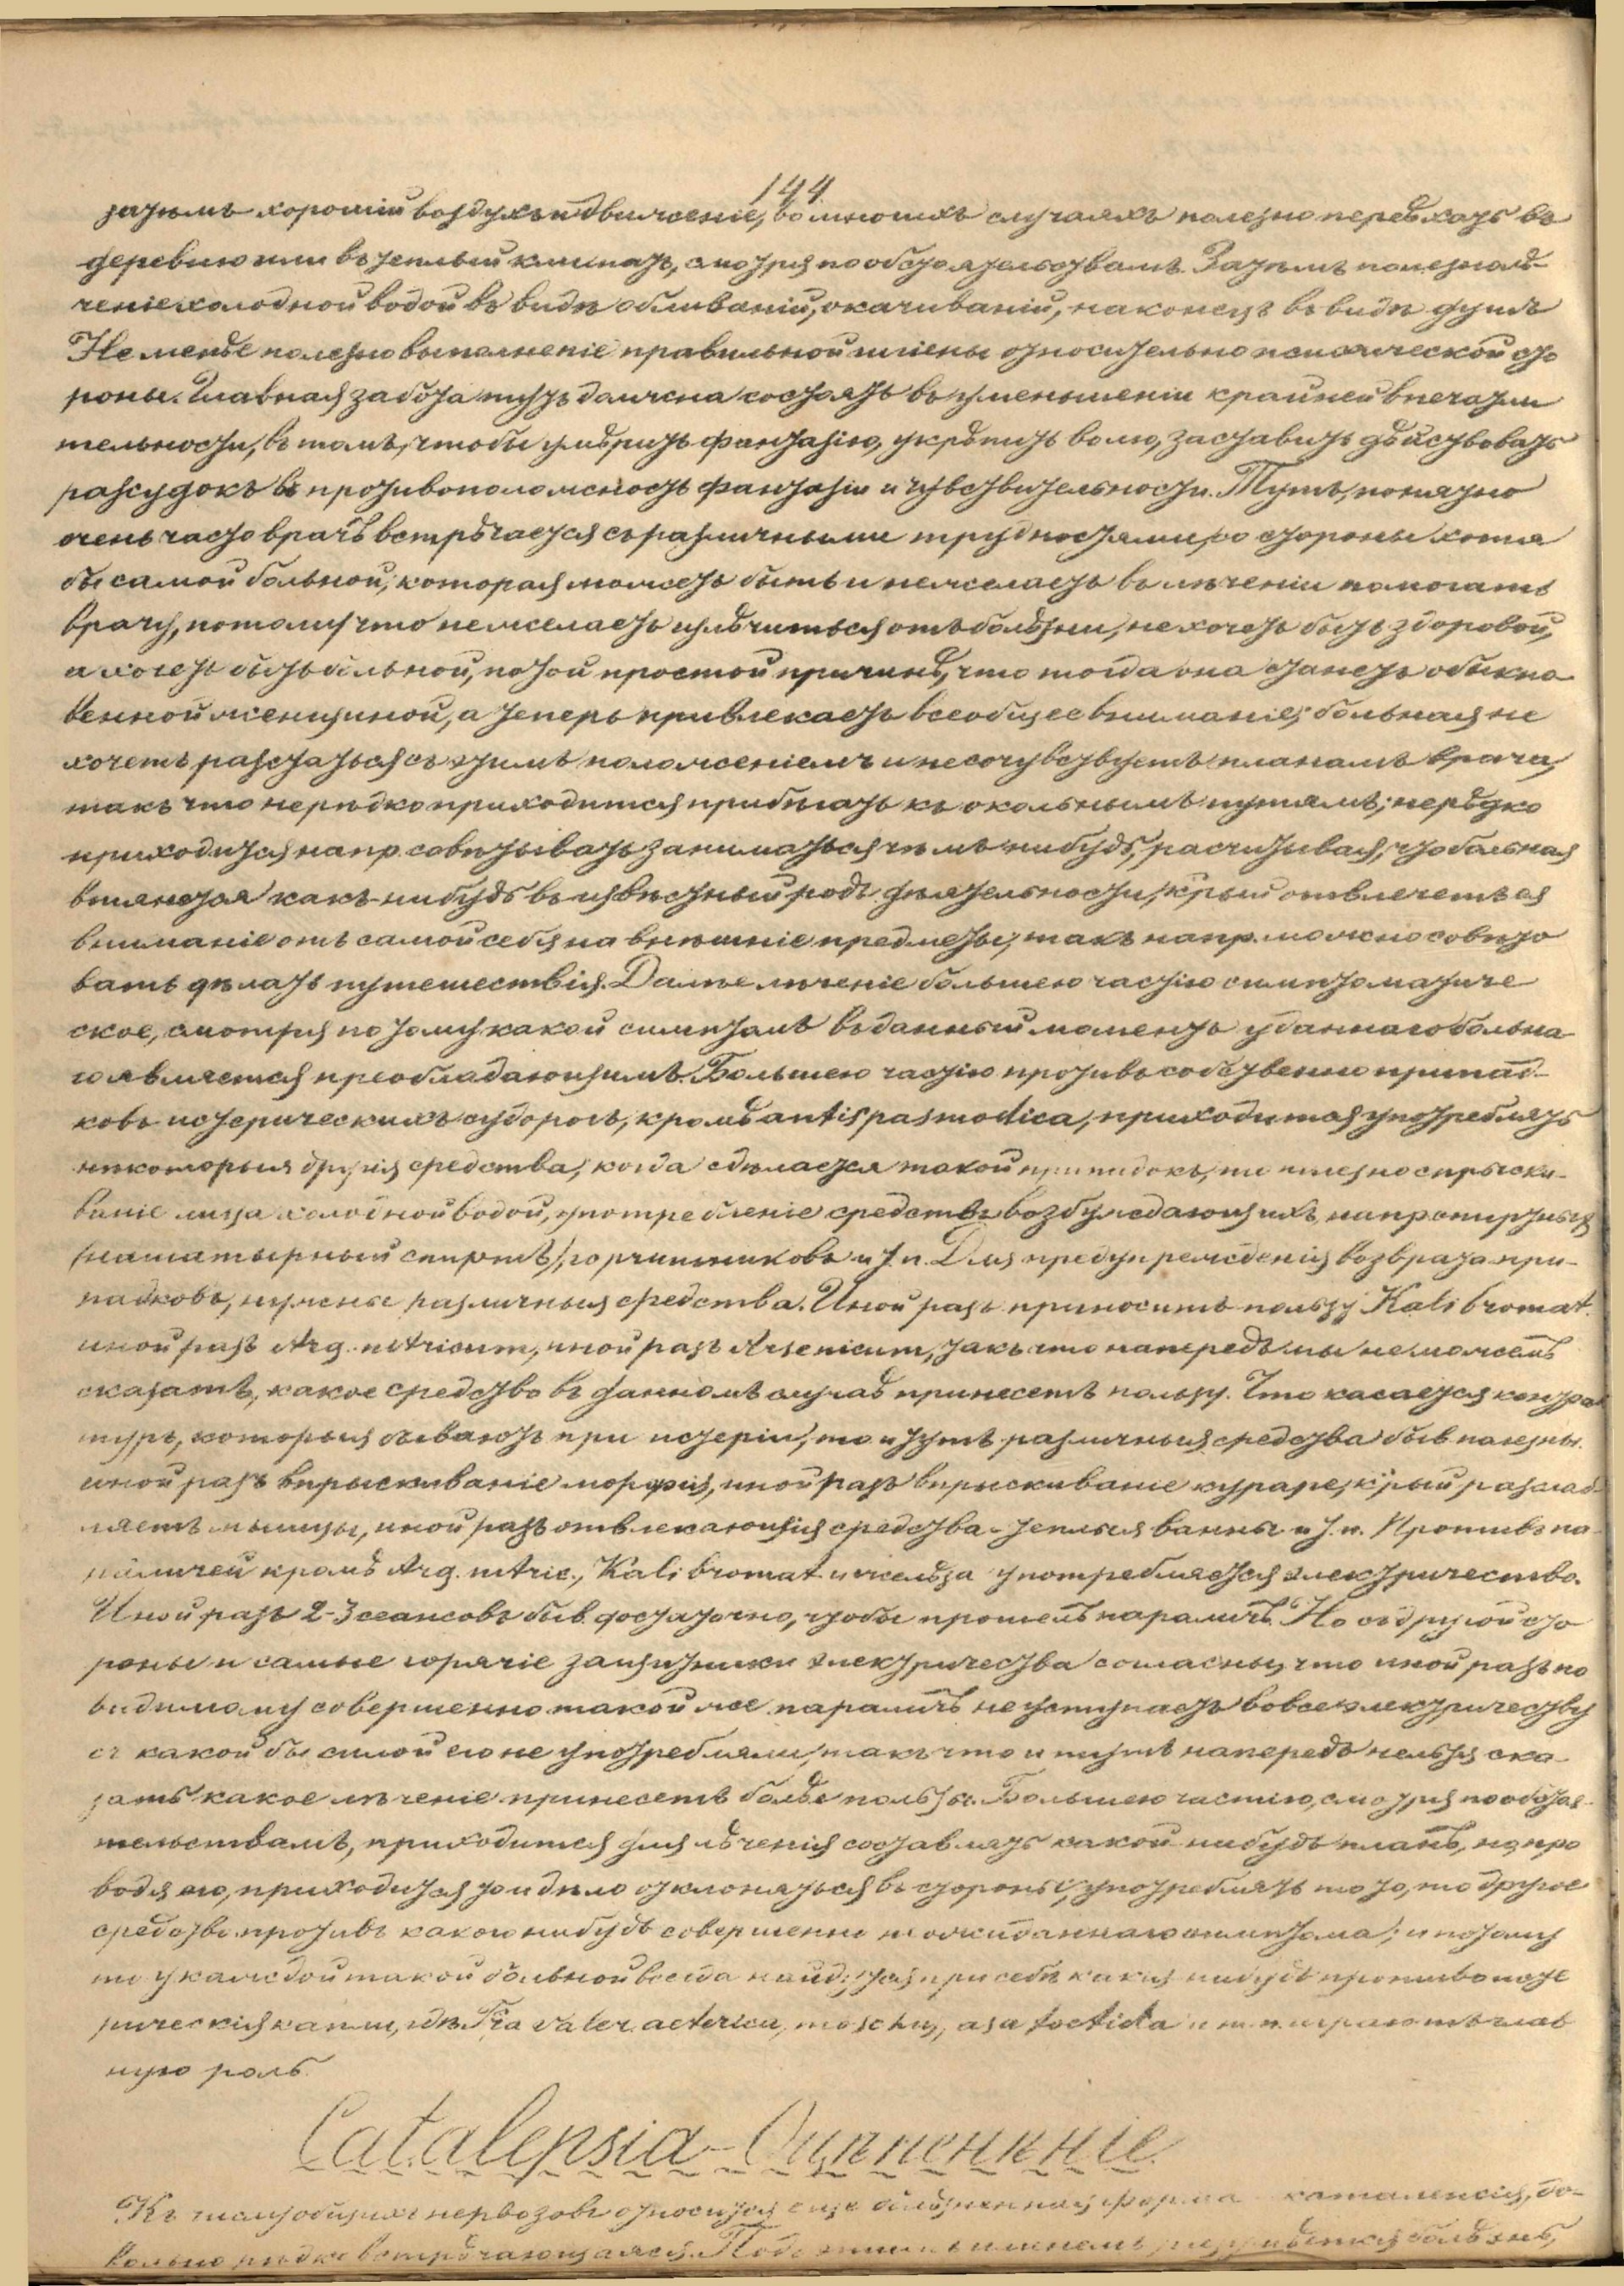 144
затѣмъ хорошій воздухъ и движеніе, во многихъ случаяхъ полезно переѣхать въ
деревню или въ теплый климатъ, смотря по обстоятельствамъ. Затѣмъ полезно лѣ-
ченіе холодной водой въ видѣ обливаній, окачиваній, наконецъ въ видѣ душъ
Не менѣе полезно выполненіе правильной гигіены относительно психической сто
роны. Главная забота тутъ должна состоять въ уменьшеніи крайней впечатли
тельности, въ томъ, чтобы умѣрить фантазію, укрѣпить волю, заставить дѣйствовать
разсудокъ въ противоположность фантазіи и чувствительности. Тутъ, понятно
очень часто врачъ встрѣчается съ различными трудностями, со стороны хотя
бы самой больной, которая можетъ быть и не желаетъ въ лѣченіи помогать
врачу, потому что не желаетъ излѣчиться отъ болѣзни, не хочетъ быть здоровой,
а хочетъ быть больной, по той простой причинѣ, что тогда она станетъ обыкно
венной женщиной, а теперь привлекаетъ всеобщее вниманіе; больная не
хочетъ разстаться съ этимъ положеніемъ и не сочувствуетъ планамъ врача,
такъ что нерѣдко приходится прибѣгать къ окольнымъ путямъ; нерѣдко
приходится напр. совѣтывать заниматься чѣмъ нибудь, расчитывая, что больная
втянется какъ-нибудь въ извѣстный родъ дѣятельности, к̃рый отвлечетъ ея
вниманіе отъ самой себя на внѣшніе предметы; такъ напр. можно совѣто
вать дѣлать путешествія. Далѣе лѣченіе большею частію симптоматиче
ское, смотря по тому какой симптомъ въ данный моментъ у даннаго больна
го является преобладающимъ. Большею частію противъ собственно припад-
ковъ истерическихъ судорогъ, кромѣ antispasmodica, приходится употреблять
нѣкоторыя другія средства; когда сдѣлается такой припадокъ, то полезно спрыски-
ваніе лица холодной водой, употребленіе средствъ возбуждающихъ, напр спиртныхъ
(нашатырный спиртъ), горчишниковъ и т п. Для предупрежденія возврата при-
падковъ, нужны различныя средства. Иной разъ приноситъ пользу Kali bromat.
иной разъ Arg. nitricum, иной разъ Arsenicum, такъ что напередъ мы не можемъ
сказать, какое средство въ данномъ случаѣ принесетъ пользу. Что касается контрак
туръ, которыя бываютъ при истеріи, то и тутъ различныя средства быв. полезны.
иной разъ впрыскиваніе морфія, иной разъ впрыскиваніе кураре, к̃рый разслаб-
ляетъ мышцы, иной разъ отвлекающія средства - теплыя ванны и т. п. Противъ па-
раличей кромѣ Arg. nitric., Kali bromat. и желѣза употребляется электричество.
Иной разъ 2-3 сеансовъ быв. достаточно, чтобы прошелъ параличъ. Но съ другой сто
роны и самые горячіе защитники электричества согласны, что иной разъ по
видимому совершенно такой же параличъ не уступаетъ вовсе электричеству
съ какой бы силой его не употребляли, такъ что и тутъ напередъ нельзя ска-
зать какое лѣченіе принесетъ болѣе пользы. Большею частію, смотря по обстоя-
тельствамъ, приходится для лѣченія составлять какой-нибудь планъ, но, про
водя его, приходится то и дѣло отклоняться въ стороны, употреблять то то, то другое
средство противъ какого нибудь совершенно неожиданнаго симптома; и потому
то у каждой такой больной всегда найдутся при себѣ какія нибудь противоисте
рическія капли, гдѣ T̃ra valer. aeterica, moschus, asa foetida и т. п. играютъ глав
ную роль.
Catalepsia - Оцѣпенѣніе.
Къ числу общихъ неврозовъ относится еще болѣзненная форма каталепсія, до-
вольно рѣдко встрѣчающаяся. Подъ этимъ именемъ разумѣется болѣзнь,